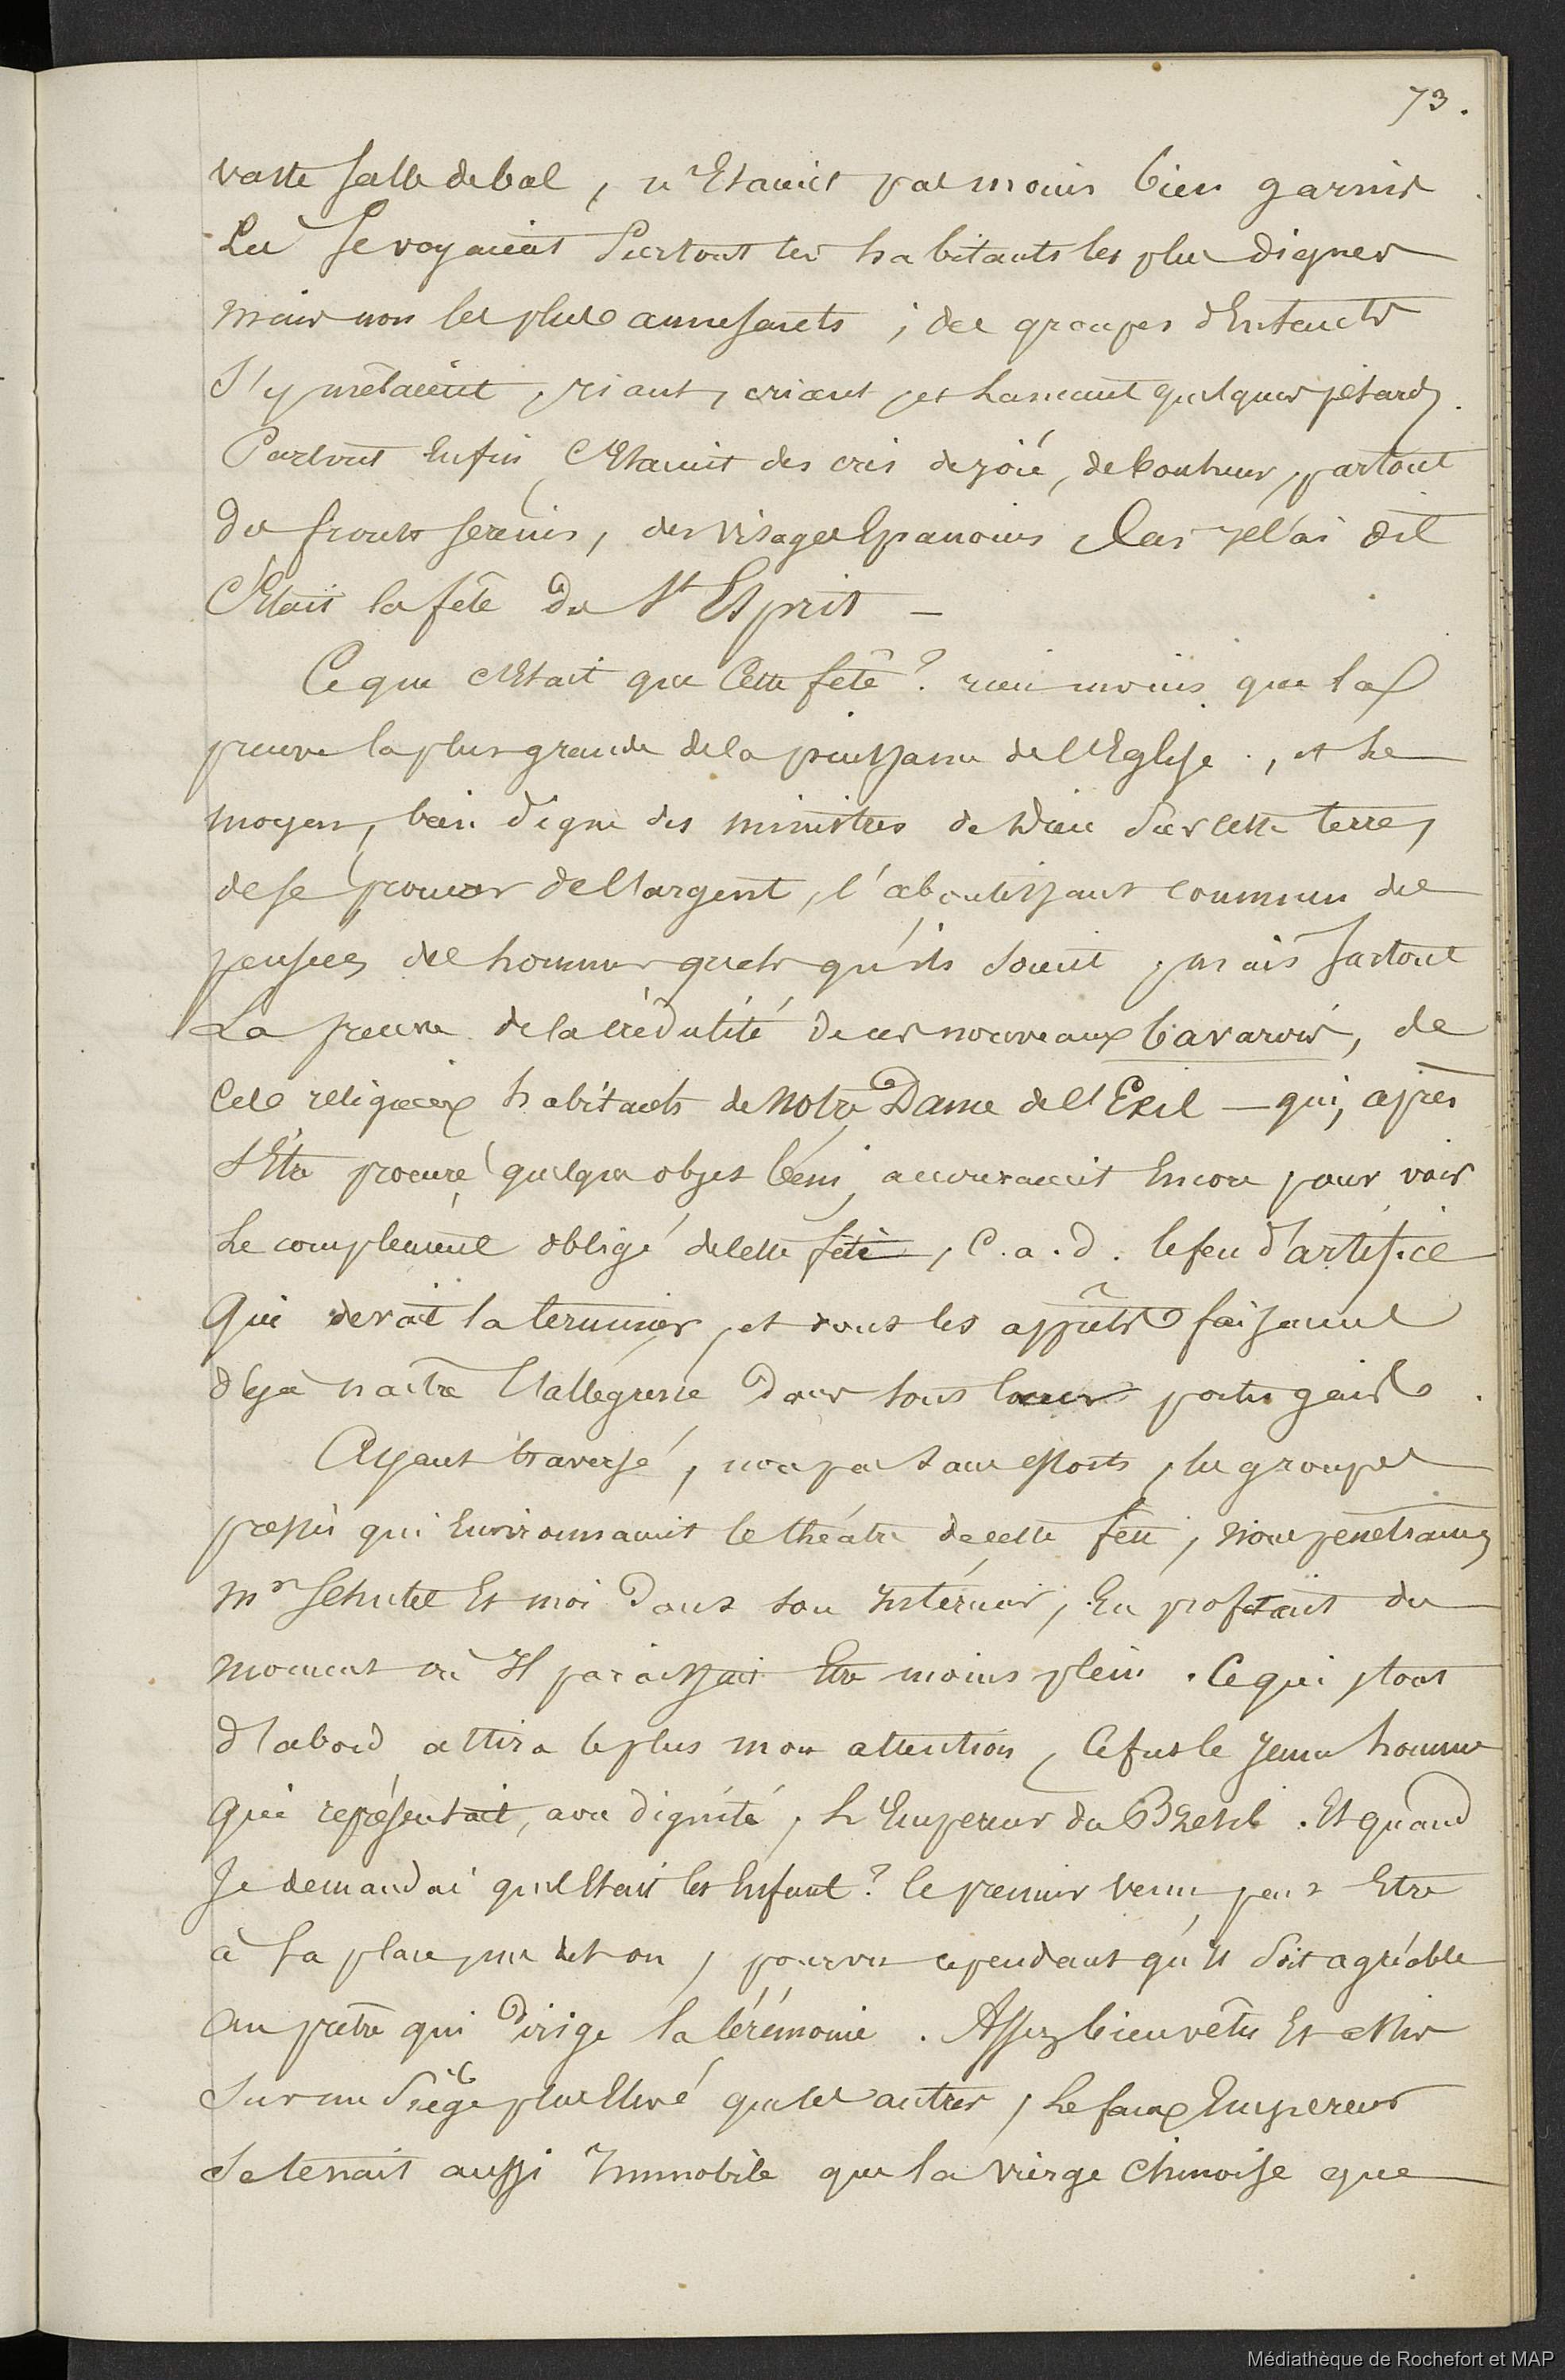 73.
vaste salle de bal, n'Etaient pas moins bien garnis.
Là se voyaient surtout les habitants les plus dignes
mais non les plus amusants ; des groupes d'Enfants
s'y mêlaient, riant, criant et lancant quelques pétards.
Partout Enfin c'Etaient des cris de joie, de bonheur, partout
des fronts sereins, des visages Epanouis, Car je l'ai dit
C'Etait la fête du St Esprit —
Ce que c'Etait que Cette fête ? rien moins que la
preuve la plus grande de la puissance de l'Eglise, et le
moyen, bien digne des ministres de Dieu sur cette terre,
de se procurer de l'argent, l'aboutissant commun des
pensées des hommes quels qu'ils soient, mais surtout
La preuve de la crédulité de ces nouveaux bavarois, de
Ces religieux habitants de Notre Dame de l'Exil — qui, après
s'Etre procuré quelque objet béni, accouraient Encore pour voir
Le complément obligé de cette fête, C.a.d. le feu d'artifice
Qui devait la terminer, et dont les apprêts faisaient
déjà naitre l'allégresse dans tous les coeurs portugais.
Ayant traversé, non pas sans efforts, les groupes
pressés qui Environnaient le théatre de cette fête, nous penetrames
Mr Schutel Et moi dans son Intérieur, En profitant du
moment où Il paraissait Etre moins plein. Ce qui tout
d'abord attira le plus mon attention, Ce fut le jeune homme
Qui représentait, avec dignité, L'Empereur du Brésil. Et quand
Je demandai quel Etait cet Enfant ? le premier venu peut Etre
à sa place me dit on, pourvu cependant qu'il soit agréable
au prêtre qui dirige la Cérémonie. Assez bien vêtu Et assis
Sur un Siège plus Elevé que les autres, Le faux Empereur
Se tenait aussi Immobile que la vierge chinoise que